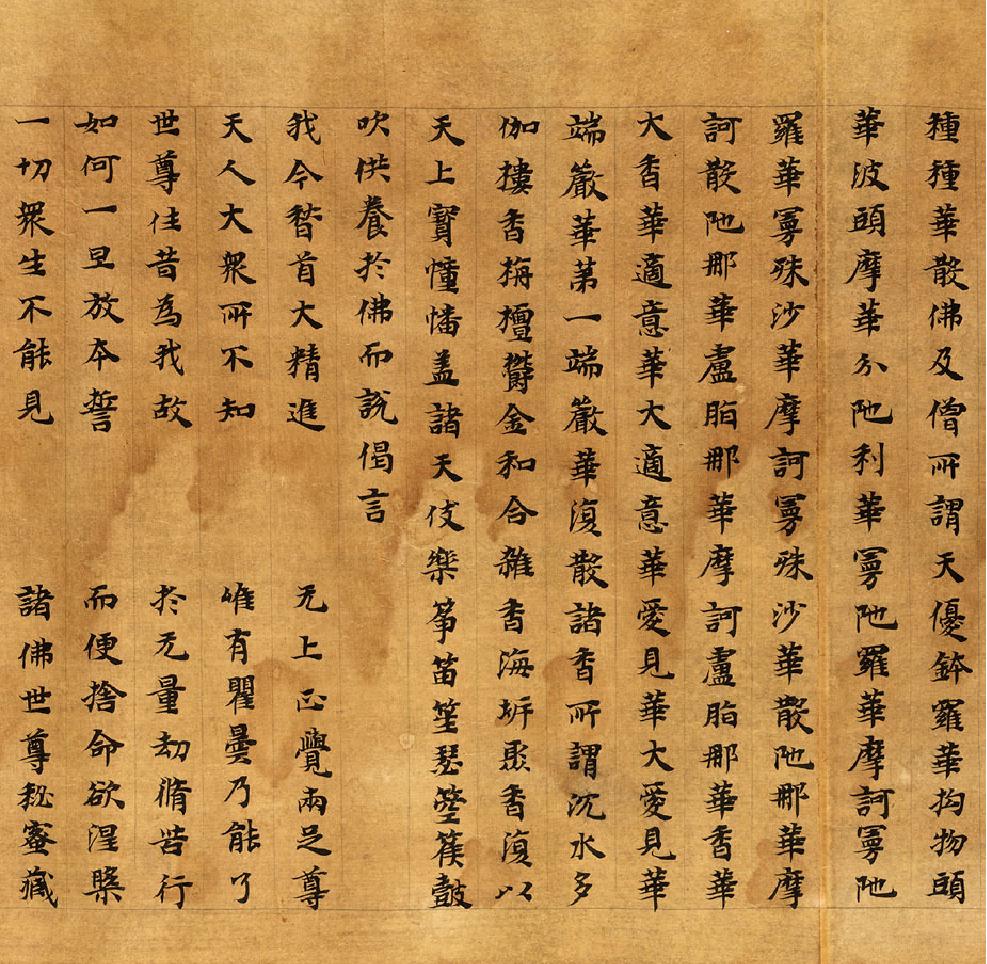 種種華散佛及僧所謂天優鉢羅華拘物頭
華波頭摩華分陁利華㝹陁羅華摩訶㝹陁
羅華㝹殊沙華摩訶㝹殊沙華散陁那華摩
訶散陁那華盧脂那華摩訶盧脂那華香華
大香華適意華大適意華愛見華大愛見華
端嚴華第一端嚴華復散諸香所謂沉水多
伽樓香栴檀欝金和合雜香海岸聚香復以
天上寶憧幡盖諸天伎樂箏笛笙瑟箜篌皷
吹供養於佛而說偈言
我今嵆首大精進 无上正覺兩足尊
天人大衆所不知 唯有瞿曇乃能了
世尊往昔為我故 於无量劫脩苦行
如何一旦放本誓 而便捨命欲涅槃
一切衆生不能見 諸佛世尊秘蜜藏